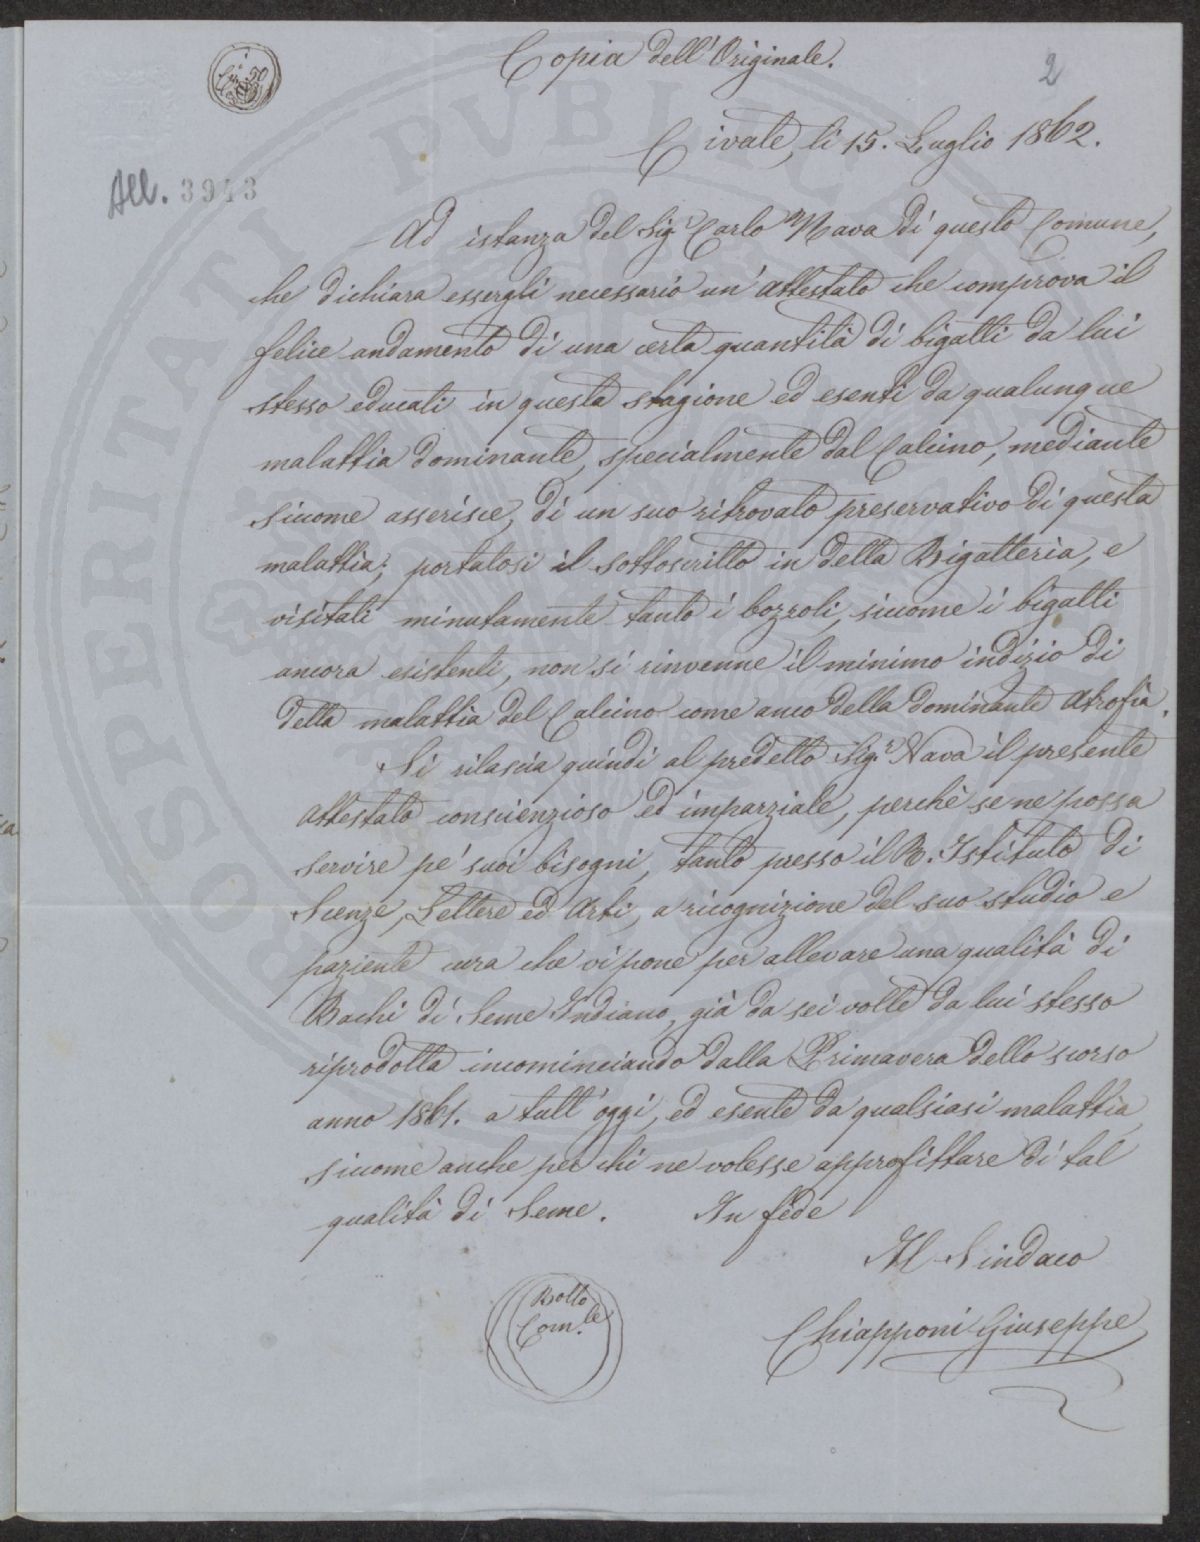 Copia dell'Originale.
2
Cent. 50
All. 3943
Civate, li 15. Luglio 1862.
Ad istanza del Sig.r Carlo Nava di questo Comune,
che dichiara essergli necessario un' attestato che comprova il
felice andamento di una certa quantità di bigatti da lui
stesso educati in questa stagione ed esenti da qualunque
malattia dominante, specialmente dal Calcino, mediante
siccome asserisce, di un suo ritrovato preservativo di questa
malattia; portatosi il sottoscritto in detta Bigatteria, e
visitati minutamente tanto i bozzoli, siccome i bigatti
ancora esistenti, non si rinvenne il minimo indizio di
detta malattia del Calcino come anco della dominante Atrofia.
Si rilascia quindi al predetto Sig.r Nava il presente
attestato conscienzioso ed imparziale, perchè se ne possa
servire pe' suoi bisogni, tanto presso il R. Istituto di
Scienze, Lettere ed Arti, a ricognizione del suo studio e
paziente cura che vi pone per allevare una qualità di
Bachi di Seme Indiano, già da sei volte da lui stesso
riprodotta incominciando dalla Primavera dello scorso
anno 1861. a tutt'oggi, ed esente da qualsiasi malattia
siccome anche per chi ne volesse approfittare di tal
qualità di Seme. In fede
Il Sindaco
Bollo
Com.le
Chiapponi Giuseppe
PROSPERITATI PUBLICAE